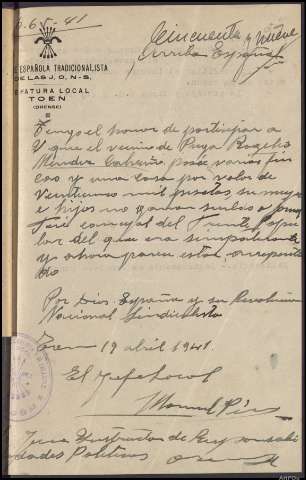 65-41
Cincuenta y nueve
Arriba España!
ESPAÑOLA TRADICIONALISTA
DE LAS J. O. N-S.
FATURA LOCAL
TOEN
(ORENSE)
Tengo el honor de participar a
V que el vecino de Puga
Mendez posee varias fin
cas y una casa por valor de
mil pesetas, su mujer
e hijos no ganan sueldo
fue concejal del Frente Popu
lar del que era simpatizante
y ahora parece estar arrepenti
do
Por Dios España y su Revolucion
Nacional Sindicalista
Toen 19 abril 1941.
El Jefe Local
Manuel
Juez Instructor de Responsabi
lidades Politicas